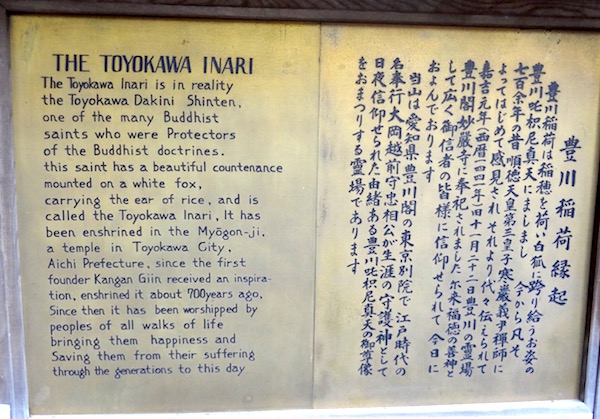 THE TOYOKAWA INARI
The Toyokawa Inari is in reality
the Toyokawa Dakini Shinten,
one of the many Buddhist
saints who were Protectors
of the Buddhist doctrines.
this saint has a beautiful countenance
mounted on a white fox,
carrying the ear of rice, and is
called the Toyokawa Inari, It has
been enshrined in the Myōgon-ji,
a temple in Toyokawa City,
Aichi Prefecture, since the first
founder Kangan Giin received an inspira-
tion, enshrined it about 700years ago,
Since then it has been worshipped by
peoples of all walks of life
bringing them happiness and
Saving them from their suffering
through the generations to this day
豊川稲荷縁起
豊川稲荷は稲穂を荷い白狐に跨り給うお姿の
豊川吒枳尼真天にましまし 今から凡そ
七百余年の昔 順徳天皇第三皇子寒巌義尹禅師に
よってはじめて感見され それより代々伝えられて
嘉吉元年(西暦一四四一年)旧十一月二十二日豊川の霊場
豊川閣妙厳寺に奉祀されました 尓来福徳の善神と
して広く御信者の皆様に信仰せられて今日に
およんでおります
当山は愛知県豊川閣の東京別院で江戸時代の
名奉行大岡越前守忠相公が生涯の守護神として
日夜信仰せられた由緒ある豊川吒枳尼真天の御尊像
をおまつりする霊場であります